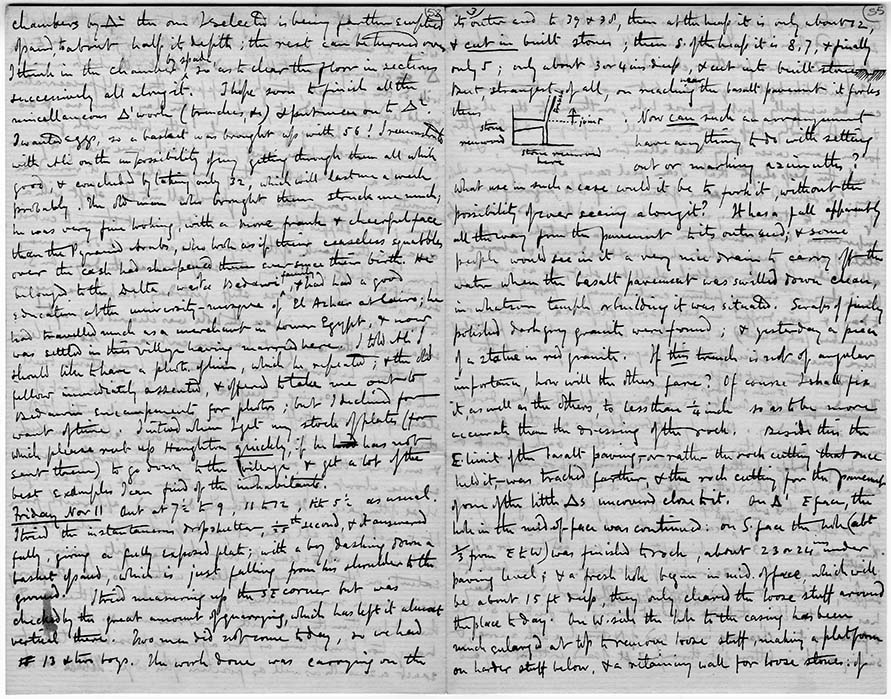 chambers by Δ² the one I selected is being further emptied
of sand, to about half its depth; the rest can be turned over
I think in the chamber by spade so as to clear the floor in sections
successively all along it. I hope soon to finish all the
miscellaneous Δ¹ work (trenches, &c) & put men on to Δ².
I wanted eggs, so a basket was brought up with 56! I remonstrated
with Ali on the impossibility of my getting through them all while
good, & concluded by taking only 32, which will last me a week
probably. The old man who brought them struck me much;
he was very fine looking, with a more frank & cheerful face
than the Pyramid Arabs, who look as if their ceaseless squabbles
over the cash had sharpened them ever since their birth. He
belonged to the Delta, was of a Bedawi family, & had had a good
education at the university-mosque of El Azhar at Cairo; he
had travelled much as a merchant in Lower Egypt, & now
was settled in this village having married here. I told Ali I
should like to have a photo of him, which he repeated; & the old
fellow immediately assented, & offered to take me out to
Bedawin encampments for photos; but I declined for
want of time. I intend when I get my stock of plates (for
which please rout up Haughton quickly, if he has not
sent them) to go down to the village, & get a lot of the
best examples I can find of the inhabitants.
Friday Nov 11 Out at 7½ to 9, 11 to 12, till 5½ as usual.
I tried the instantaneous drop shutter, second, & it answered
fully, giving a fully exposed plate; with a boy dashing down a
basket of sand, which is just falling from his shoulder to the
ground. I tried measuring up the SE corner but was
checked by the great amount of quarrying, which has left it almost
vertical there. Two men did not come today, so we had
13 & two boys. The work done was carrying on the
58
3)
55
its outer end to 39 & 38, then at the heap it is only about 12,
& cut in built stones; then S. of the heap it is 8, 7, & finally
only 5; only about 3 or 4 in deep, & cut into built stones.
But strangest of all, on reaching near the basalt pavement it forks
thus
stone removed
joint
stone removed here
. Now can such an arrangement
have anything to do with setting
out or marking azimuths?
What use in such a case would it be to fork it, without the
possibility of ever seeing along it? It has a fall apparently
all the way from the pavement to its outer end; & some
people would see in it a very nice drain to carry off the
water when the basalt pavement was swilled down clean,
in whatever temple or building it was situated. Scraps of finely
polished dark grey granite were found; & yesterday a piece
of a statue in red granite. If this trench is not of angular
importance, how will the others fare? Of course I shall fix
it, as well as the others, to less than ¼ inch so as to be more
accurate than the dressing of the rock. Beside this the
E limit of the basalt paving – or rather the rock cutting that once
held it – was tracked farther, & the rock cutting for the pavement
of one of the little Δs uncovered close to it. On Δ¹ E face, the
hole in the mid of face was continued: on S. face the hole (abt
⅓ from E to W) was finished to rock, about 23 or 24 in under
paving level; & a fresh hole begun in mid. of face, which will
be about 15 ft deep, they only cleared the loose stuff around
the place to day. On W. side the hole to the casing has been
much enlarged at top to remove loose stuff, making a platform
on harder stuff below, & a retaining wall for loose stones: of